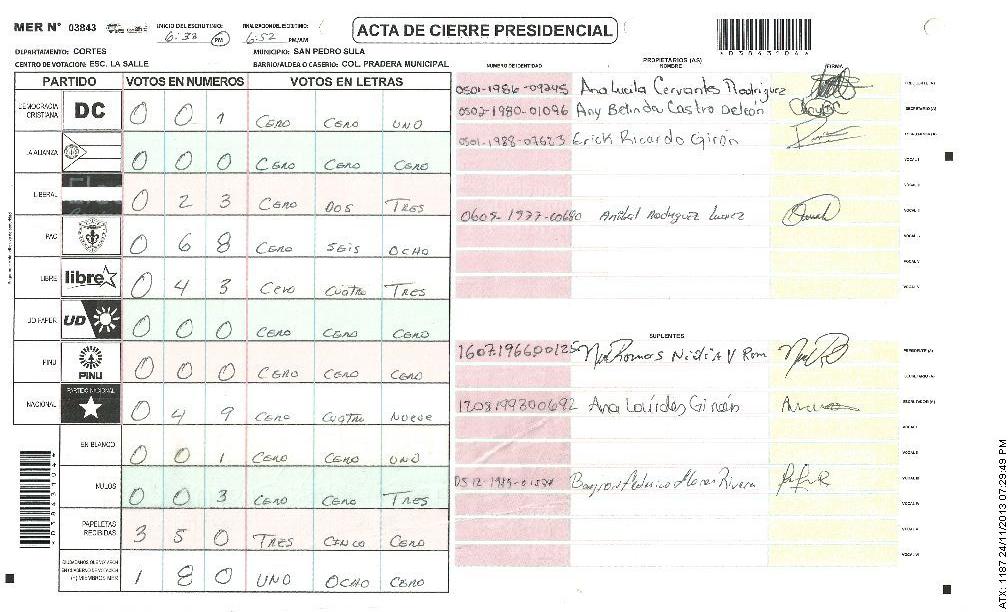 MER N° 03843
INICIO DEL ESCRUTINIO: 6:33 PM
FINALIZACION DEL ESCRUTINIO: 6:52 PM/AM
ACTA DE CIERRE PRESIDENCIAL
DEPARTAMENTO: CORTES
MUNICIPIO: SAN PEDRO SULA
CENTRO DE VOTACION: ESC. LA SALLE
BARRIO/ALDEA O CASERIO: COL. PRADERA MUNICIPAL
PARTIDO VOTOS EN NUMEROS VOTOS EN LETRAS
DEMOCRACIA CRISTIANA DC 0 0 1 CERO CERO UNO
LA ALIANZA 0 0 0 CERO CERO CERO
LIBERAL 0 2 3 CERO DOS TRES
PAC 0 6 8 CERO SEIS OCHO
LIBRE libre 0 4 3 Cero Cuatro TRES
UD FAPER UD 0 0 0 CERO CERO CERO
PINU PINU 0 0 0 CERO CERO CERO
NACIONAL PARTIDO NACIONAL 0 4 9 CERO Cuatro Nueve
EN BLANCO 0 0 1 CERO CERO UNO
NULOS 0 0 3 CERO CERO TRES
PAPELETAS RECIBIDAS 3 5 0 TRES CINCO CERO
CIUDADANOS QUE VOTARON
EN CUADERNO DE VOTACION
(+) MIEMBROS MER 1 8 0 UNO OCHO CERO
PROPIETARIOS (AS)
NUMERO DE IDENTIDAD NOMBRE FIRMA
0501-1986-09245 Ana Lucila Cervantes Rodriguez PRESIDENTE (A)
0502-1980-01096 Any Belinda Castro Deleón SECRETARIO (A)
0501-1988-07623 Erick Ricardo Girón
VOCAL I
VOCAL II
Anibal Rodriguez
VOCAL V
SUPLENTES
PRESIDENTE (A)
SECRETARIO (A)
Ana Lourdes Girón ESCRUTADOR (A)
VOCAL I
VOCAL II
Rivera VOCAL III
VOCAL IV
VOCAL V
VOCAL VI
ATX: 1187 24/11/2013 07:29:49 PM